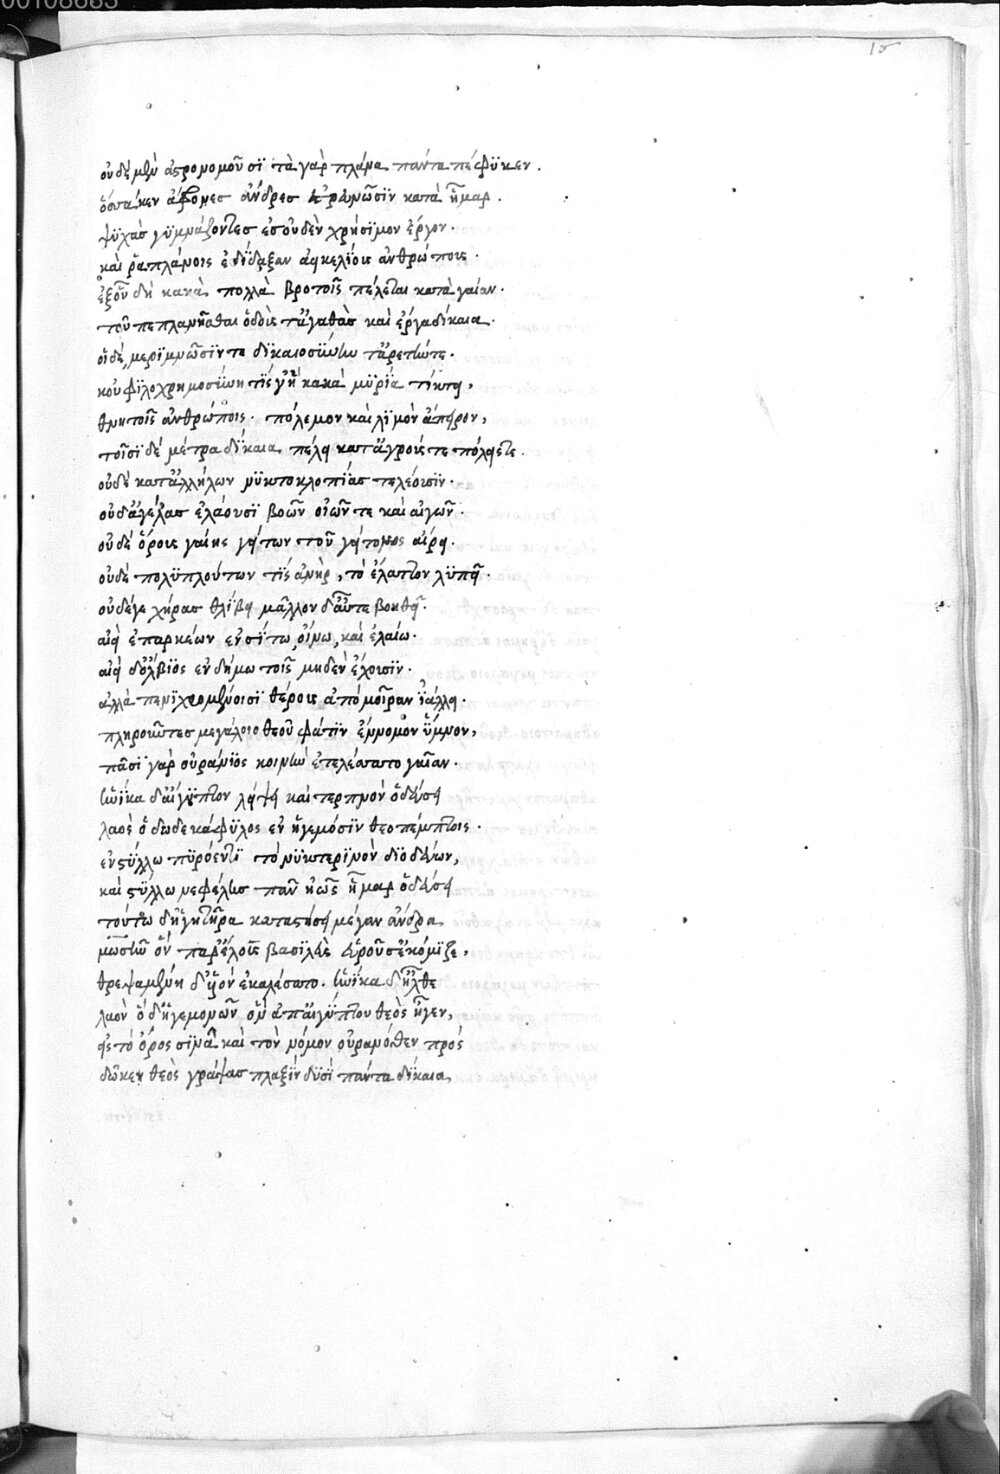 00108683
15
οὐδὲ μὲν ἀστρονομοῦσϊ τὰ γὰρ πλάνα πάντα πέφϋκεν.
ὅσσα κεν ἄφρονες ἄνδρες ἐρευνῶσϊν κατὰ ἦμαρ.
ψϋχὰς γϋμνάζοντες ἐσ οὐδὲν χρήσϊμον ἔργον.
καί ῥα πλάνοις ἐδίδαξαν ἀεικελΐοις ἀνθρώποις.
ἐξ οὗ δὴ κακὰ πολλὰ βροτοῖς πέλεται κατὰ γαίαν.
τοῦ πεπλανῆσθαι ὁδοὺς τ' ἀγαθὰς καὶ ἔργα δίκαια.
οἵδε, μερϊμνῶσϊν τε δϊκαιοσύνην τ' ἀρετήν τε.
κοὐ φϊλοχρημοσύνη τίς γῆ κακὰ μϋρΐα τίκτει,
θνητοῖς ἀνθρώποις. πόλεμον καὶ λϊμὸν ἄπειρον,
τοῖσϊ δὲ μέτρα δίκαια πέλει κατ' ἀγρούς τε πόλεις τε.
οὐδὲ κατ' ἀλλήλων νϋκτοκλοπΐας τελέουσϊν.
οὐδ' ἀγέλας ἐλάουσϊ βοῶν οἰῶν τε καὶ αἰγῶν.
οὐδὲ ὅρους γαίης γείτων τοῦ γείτονος αἴρει.
οὐδὲ πολϋπλούτων τΐς ἀνὴρ, τὸ ἔλαττον λϋπεῖ.
οὐδέ γε χήρας θλίβει μᾶλλον δ' αὖτε βοηθεῖ.
αἰεὶ ἐπαρκέων ἐν σίτω, οἴνω, καὶ ἐλαίω.
αἰεὶ δ' ὄλβϊος ἐν δήμω τοῖς μηδὲν ἔχουσϊν.
ἀλλὰ πενϊχρομένοισϊ θέρους ἀπόμοιραν ἰάλλει.
πληροῦντες μεγάλοιο θεοῦ φάτϊν ἔννομον ὕμνον,
πᾶσϊ γὰρ οὐράνϊος κοινὴν ἐτελέσσατο γαῖαν.
ἡνΐκα δ' αἴγϋπτον λείψει καὶ τερπνὸν ὁδεύσει
λαὸς ὁ δωδεκάφϋλος ἐν ἡγεμόσϊν θεοπέμπτοις.
ἐν στύλλω πϋρόεντϊ τὸ νϋκτερϊνὸν δϊοδεύων,
καὶ στύλλω νεφέλης πᾶν ἠὼς ἦμαρ ὁδεύσει
τούτω δ' ἡγητῆρα καταστήσει μέγαν ἄνδρα
μωσῆν ὃν παρ' ἕλους βασϊλὶς εὑροῦσ' ἐκόμϊζε,
θρεψαμένη δ' υἱὸν ἐκαλέσσατο. ἡνίκα δ' ἦλθε
λαὸν ὅδ' ἡγεμονῶν ὃν ἀπ' αἰγύπτου θεὸς ἦγεν,
εἰς τὸ ὄρος σϊνᾶ καὶ τὸν νόμον οὐρανόθεν πρὸς
δῶκεν θεὸς γράψας πλαξὶν δϋσὶ πάντα δίκαια,